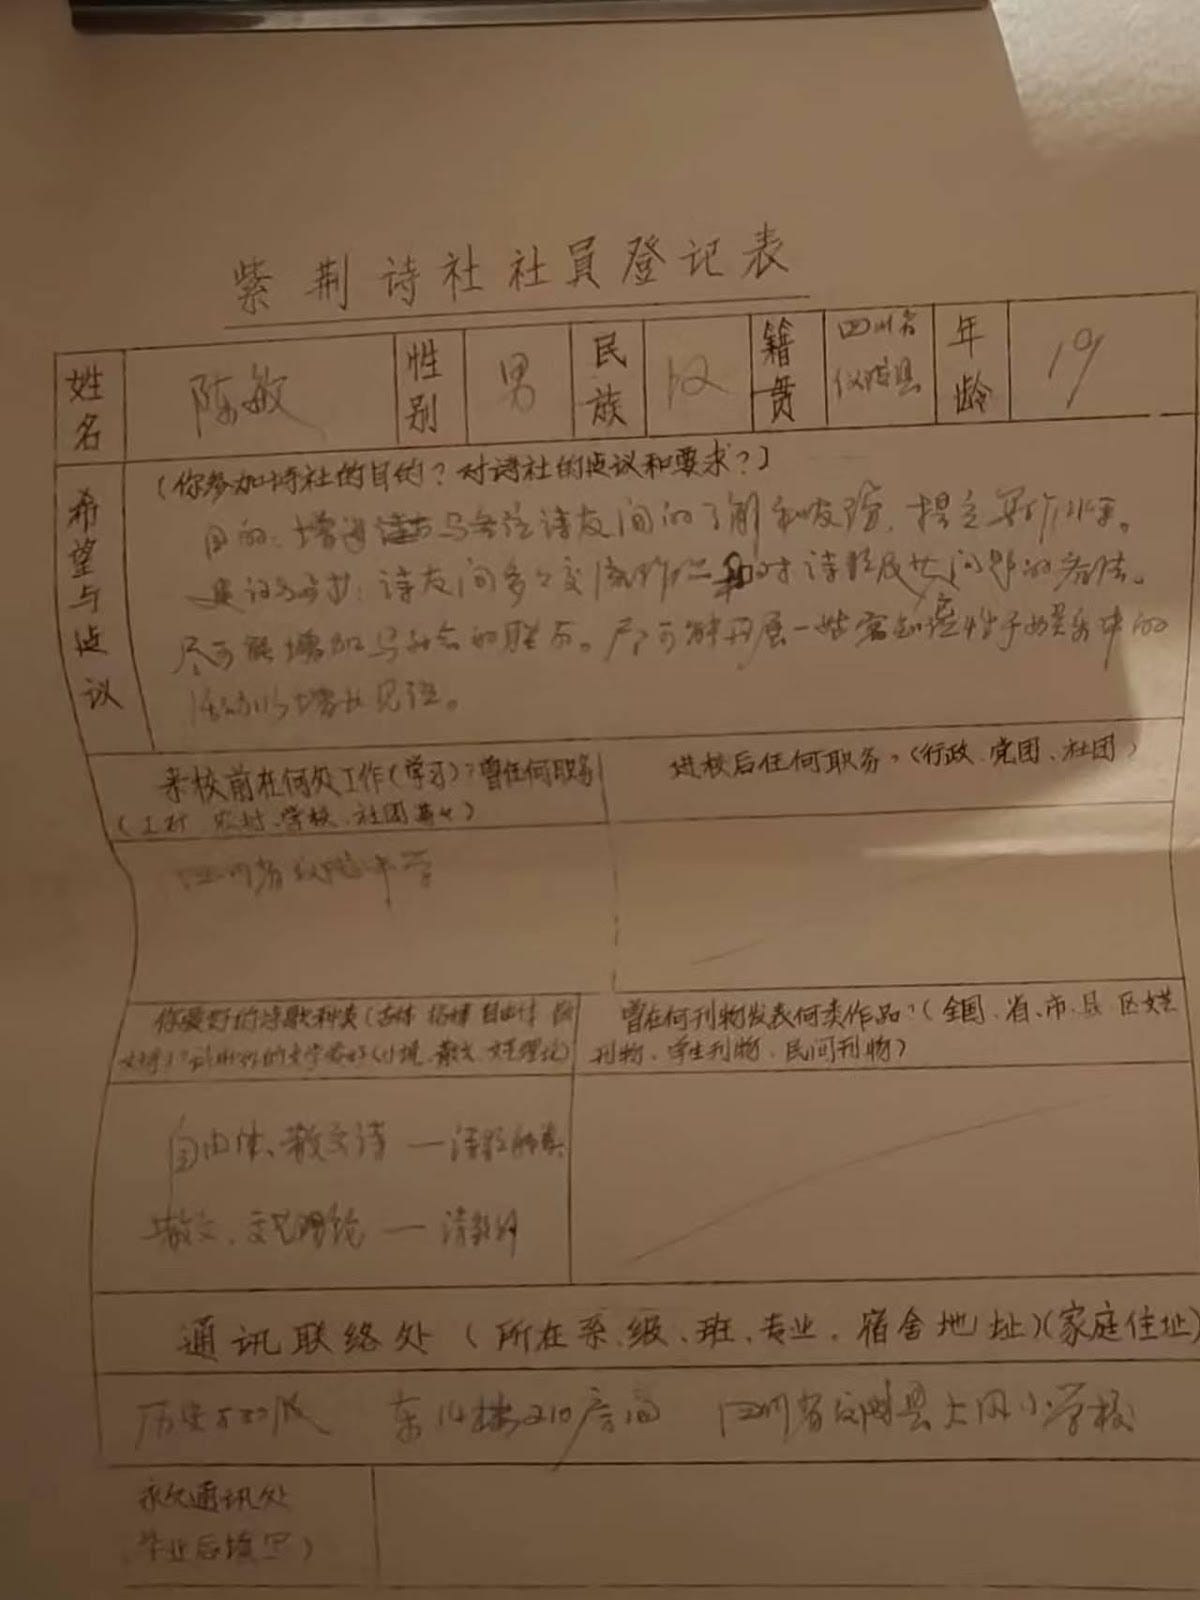 紫荆诗社社员登记表
姓名 陈敏 性别 男 民族 汉 籍贯 四川省仪陇县 年龄 19
希望与建议
(你参加诗社的目的？对诗社的建议和要求？)
目的：增进与各位诗友间的了解和友谊，提高写作水平。
建议：诗友间多多交流 和对诗歌及其问题的看法。
尽可能增加与社会的联系。尽可能开展一些寓知识性于娱乐中的
活动以增长见识。
来校前在何处工作(学习)？曾任何职务
(工村、农村、学校、社团等)
进校后任何职务？(行政、党团、社团)
四川省仪陇中学
你爱好的诗歌种类(古体 格律 自由体 散
文诗)？ 的文学爱好(小说、散文、文艺理论)
曾在何刊物发表何类作品？(全国、省、市、县、区文艺
刊物、学生刊物、民间刊物)
自由体、散文诗 — 诗歌种类
散文、文艺理论 —
通讯联络处(所在系、级、班、专业、宿舍地址)(家庭住址)
历史系 级 东14楼210房间 四川省仪陇县大风小学校
永久通讯处
毕业后填写)